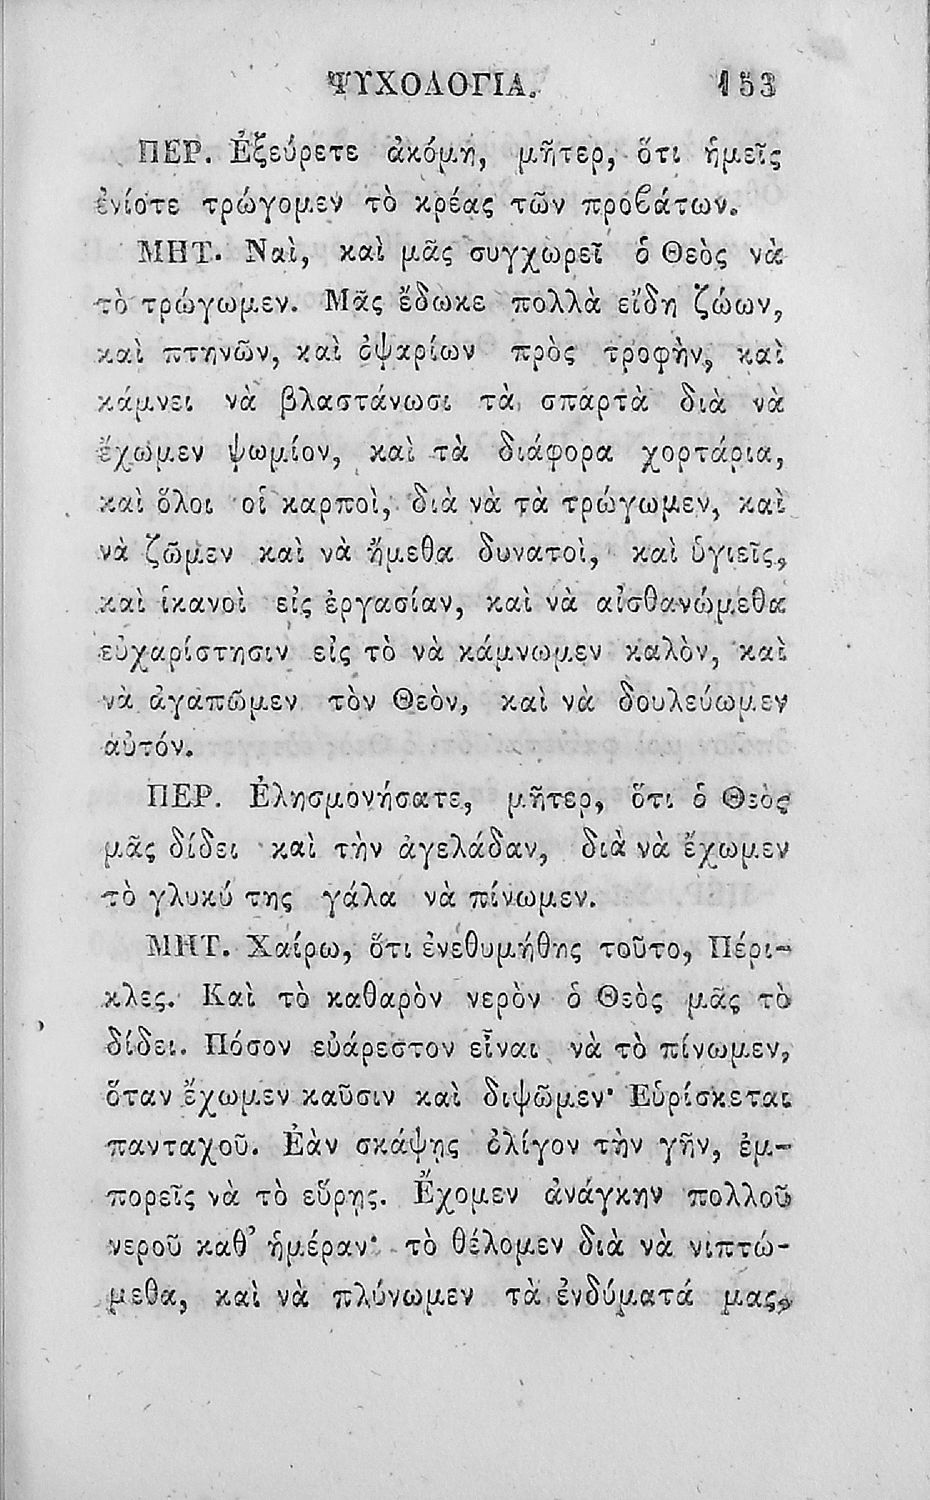 ΨΥΧΟΛΟΓΙΑ. 153
ΠΕΡ. Ἐξεύρετε ἀκόμη, μῆτερ, ὅτι ἡμεῖς
ἐνίοτε τρώγομεν τὸ κρέας τῶν προϐάτων.
ΜΗΤ. Ναὶ, καὶ μᾶς συγχωρεῖ ὁ Θεὸς νὰ
τὸ τρώγωμεν. Μᾶς ἔδωκε πολλὰ εἴδη ζώων,
καὶ πτηνῶν, καὶ ὀψαρίων πρὸς τροφὴν, καὶ
κάμνει νὰ βλαστάνωσι τὰ σπαρτὰ διὰ νὰ
ἔχωμεν ψωμίον, καὶ τὰ διάφορα χορτάρια,
καὶ ὅλοι οἱ καρποὶ, διὰ νὰ τὰ τρώγωμεν, καὶ
νὰ ζῶμεν καὶ νὰ ἤμεθα δυνατοὶ, καὶ ὑγιεῖς,
καὶ ἱκανοὶ εἰς ἐργασίαν, καὶ νὰ αἰσθανώμεθα
εὐχαρίστησιν εἰς τὸ νὰ κάμνωμεν καλὸν, καὶ
νὰ ἀγαπῶμεν τὸν Θεὸν, καὶ νὰ δουλεύωμεν
αὐτόν.
ΠΕΡ. Ἐλησμονήσατε, μῆτερ, ὅτι ὁ Θεὸς
μᾶς δίδει καὶ τὴν ἀγελάδαν, διὰ νὰ ἔχωμεν
τὸ γλυκύ της γάλα νὰ πίνωμεν.
ΜΗΤ. Χαίρω, ὅτι ἐνεθυμήθης τοῦτο, Πέρι-
κλες. Καὶ τὸ καθαρὸν νερὸν ὁ Θεὸς μᾶς τὸ
δίδει. Πόσον εὐάρεστον εἶναι νὰ τὸ πίνωμεν,
ὅταν ἔχωμεν καῦσιν καὶ διψῶμεν· Εὑρίσκεται
πανταχοῦ. Ἐὰν σκάψῃς ὀλίγον τὴν γῆν, ἐμ-
πορεῖς νὰ τὸ εὕρῃς. Ἔχομεν ἀνάγκην πολλοῦ
νεροῦ καθ’ ἡμέραν· τὸ θέλομεν διὰ νὰ νιπτώ-
μεθα, καὶ νὰ πλύνωμεν τὰ ἐνδύματά μας,